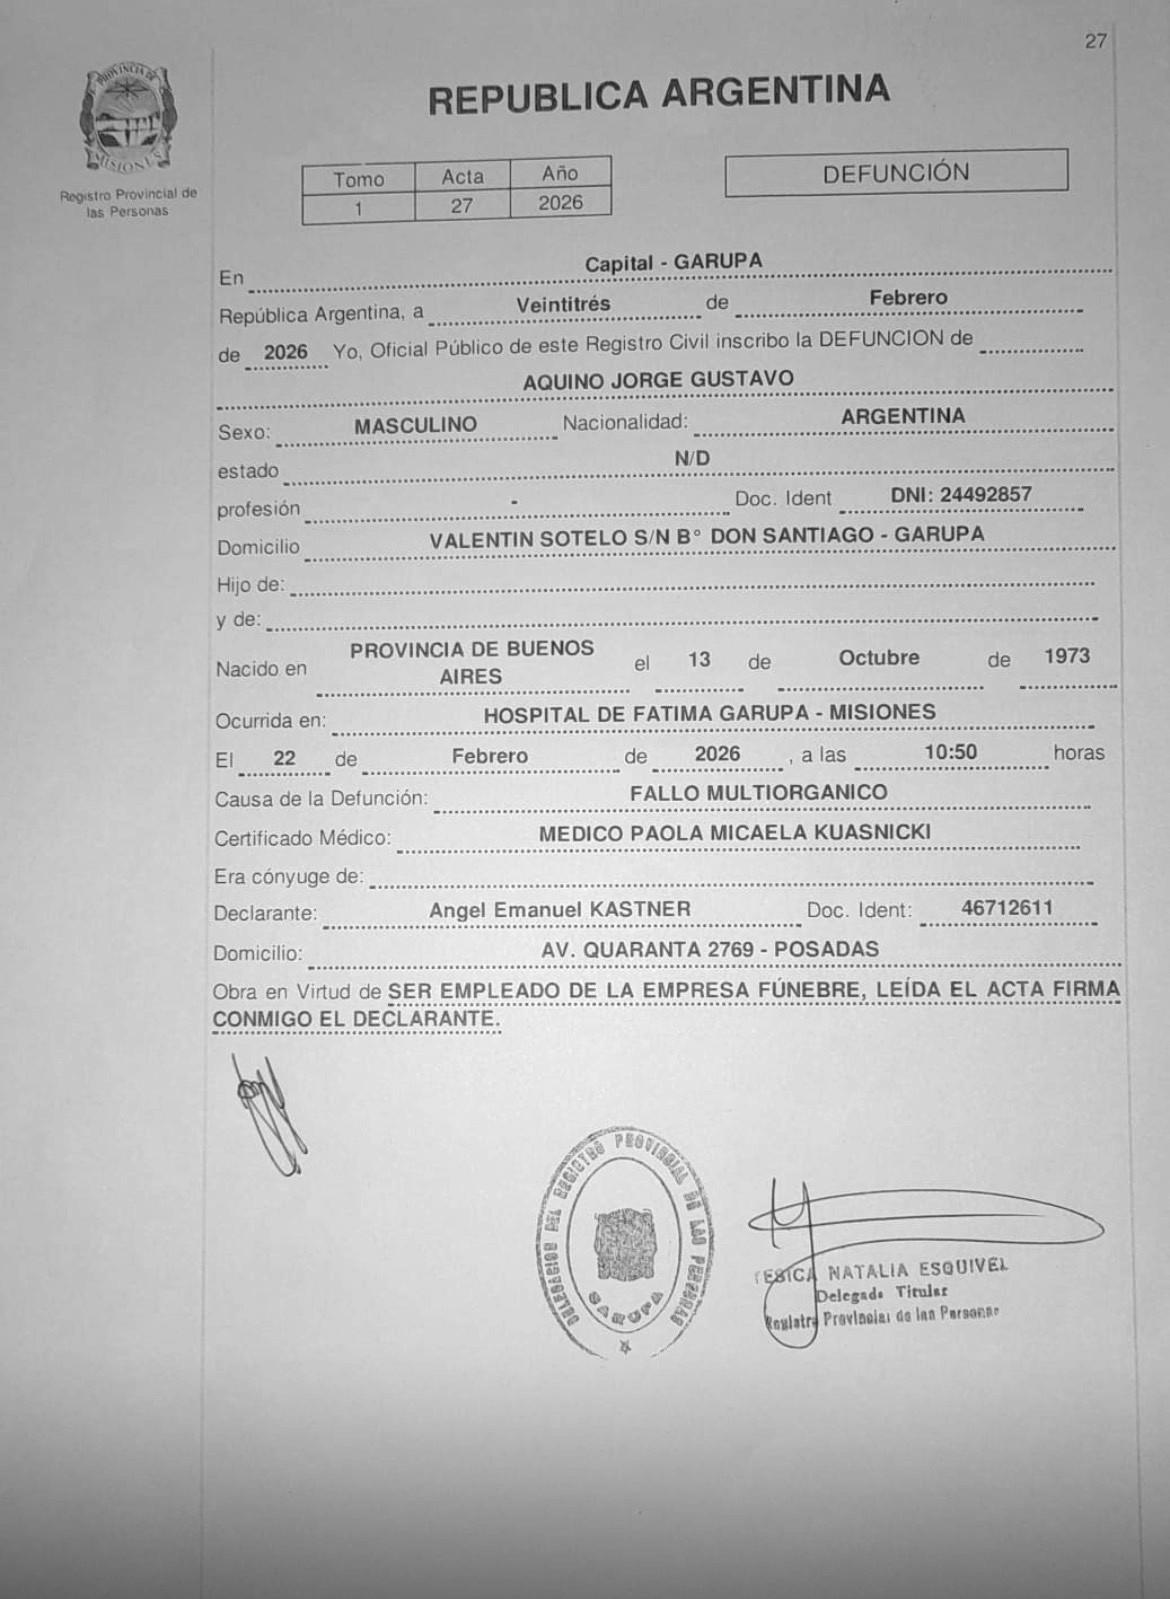 27
PROVINCIA DE
MISIONES
Registro Provincial de
las Personas
REPUBLICA ARGENTINA
Tomo Acta Año
1 27 2026
DEFUNCIÓN
En Capital - GARUPA
República Argentina, a Veintitrés de Febrero
de 2026 Yo, Oficial Público de este Registro Civil inscribo la DEFUNCION de
AQUINO JORGE GUSTAVO
Sexo: MASCULINO Nacionalidad: ARGENTINA
estado N/D
profesión - Doc. Ident DNI: 24492857
Domicilio VALENTIN SOTELO S/N B° DON SANTIAGO - GARUPA
Hijo de:
y de:
Nacido en PROVINCIA DE BUENOS AIRES el 13 de Octubre de 1973
Ocurrida en: HOSPITAL DE FATIMA GARUPA - MISIONES
El 22 de Febrero de 2026, a las 10:50 horas
Causa de la Defunción: FALLO MULTIORGANICO
Certificado Médico: MEDICO PAOLA MICAELA KUASNICKI
Era cónyuge de:
Declarante: Angel Emanuel KASTNER Doc. Ident: 46712611
Domicilio: AV. QUARANTA 2769 - POSADAS
Obra en Virtud de SER EMPLEADO DE LA EMPRESA FÚNEBRE, LEÍDA EL ACTA FIRMA
CONMIGO EL DECLARANTE.
DELEGACION DEL REGISTRO PROVINCIAL DE LAS PERSONAS
GARUPA
YESICA NATALIA ESQUIVEL
Delegada Titular
Registro Provincial de las Personas